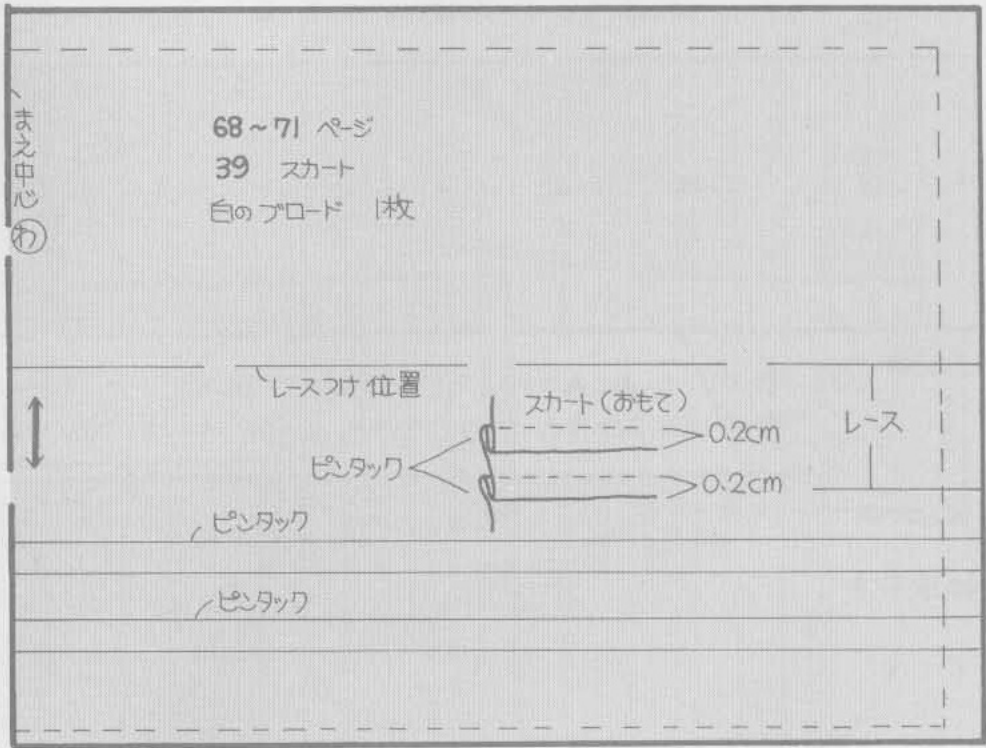 まえ中心
わ
68~71 ページ
39 スカート
白の ブロード 1枚
レースつけ位置
スカート(おもて)
ピンタック
0.2cm
0.2cm
レース
ピンタック
ピンタック